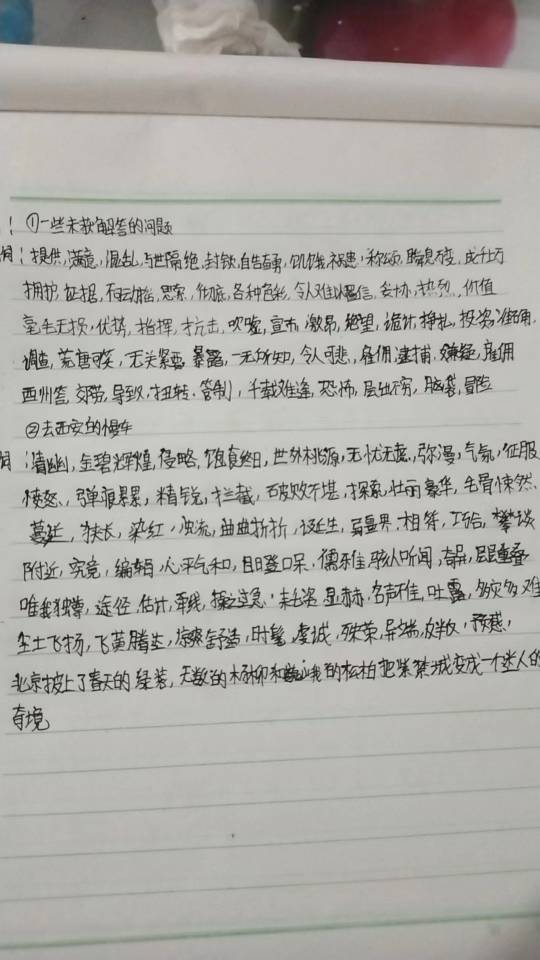 ! ①一些未获解答的问题
词: 提供, 满意, 混乱, 与世隔绝, 封锁, 自告奋勇, 饥饿, 祸患, 称颂, 瞬息万变, 成千上万
拥护, 证据, 不动声, 思索, 彻底, 各种色彩, 令人难以置信, 妥协, 热烈, 价值
毫毛无损, 优势, 指挥, 抗击, 吹嘘, 宣布, 激昂, 绝望, 诡计, 挣扎, 投资, 准确,
调查, 荒唐可笑, 无关紧要, 暴露, 一无所知, 令人可悲, 雇佣, 逮捕, 嫌疑, 雇佣
西洲答, 交锋, 导致, 扭转, 管制, 千载难逢, 恐怖, 层出不穷, 脑袋, 冒险
②去西安的慢车
词: 清幽, 金碧辉煌, 侵略, 饱食终日, 世外桃源, 无忧无虑, 弥漫, 气氛, 征服
愤怒, 弹痕累累, 精锐, 拦截, 破败不堪, 探索, 壮丽豪华, 毛骨悚然,
蔓延, 狭长, 染红, 浊流, 曲曲折折, 诞生, 疆界, 相符, 巧合, 攀谈
附近, 究竟, 编辑, 心平气和, 目瞪口呆, 儒雅, 骇人听闻, 奇异, 层层重叠
唯我独尊, 途径, 估计, 牵线, 操之过急, 未台姿, 显赫, 名声不佳, 吐露, 多灾多难
尘土飞扬, 飞黄腾达, 凉爽舒适, 时髦, 虔诚, 殊荣, 异端, 反叛, 预感,
北京披上了春天的绿装, 无数的杨柳和巍峨的松柏把紫禁城变成一个迷人的
奇境